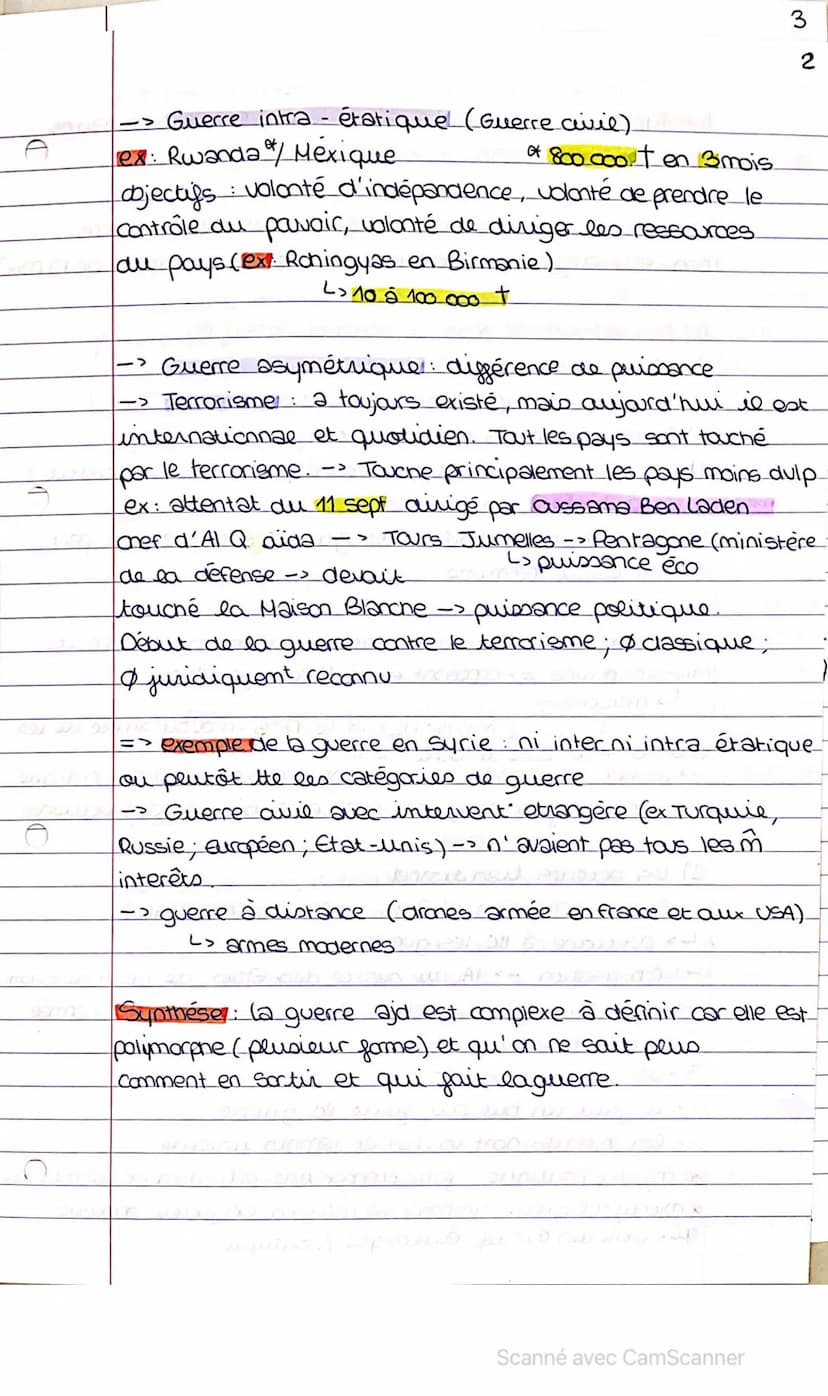 3
2
–> Guerre intra-étatique (Guerre civile)
ex: Rwanda*/ Méxique * 800 000 † en 3 mois
objectifs : volonté d'indépendance, volonté de prendre le
contrôle du pouvoir, volonté de diriger les ressources
du pays (ex: Rohingyas en Birmanie)
↳ 10 à 100 000 †
–> Guerre asymétrique : différence de puissance
–> Terrorisme : a toujours existé, mais aujourd'hui il est
internationnae et quotidien. Tout les pays sont touché
par le terrorisme. –> Touche principalement les pays moins dvlp
ex: attentat du 11 sept dirigé par Oussama Ben Laden
chef d'Al Q aïda –> Tours Jumelles –> Pentagone (ministère
↳ puissance éco
de la défense –> devait
touché la Maison Blanche –> puissance politique.
Début de la guerre contre le terrorisme ; Ø classique ;
Ø juridiquent reconnu
=> exemple de la guerre en Syrie : ni inter ni intra étatique
ou plutôt tte les catégories de guerre
–> Guerre civil avec intervent° etrangère (ex Turquie,
Russie ; européen ; Etat-Unis) –> n'avaient pas tous les m̂
interêts.
–> guerre à distance (drones armée en France et aux USA)
↳ armes modernes
Synthése : la guerre ajd est complexe à définir car elle est
polymorphe (plusieur forme) et qu'on ne sait plus
comment en sortir et qui fait la guerre.
Scanné avec CamScanner